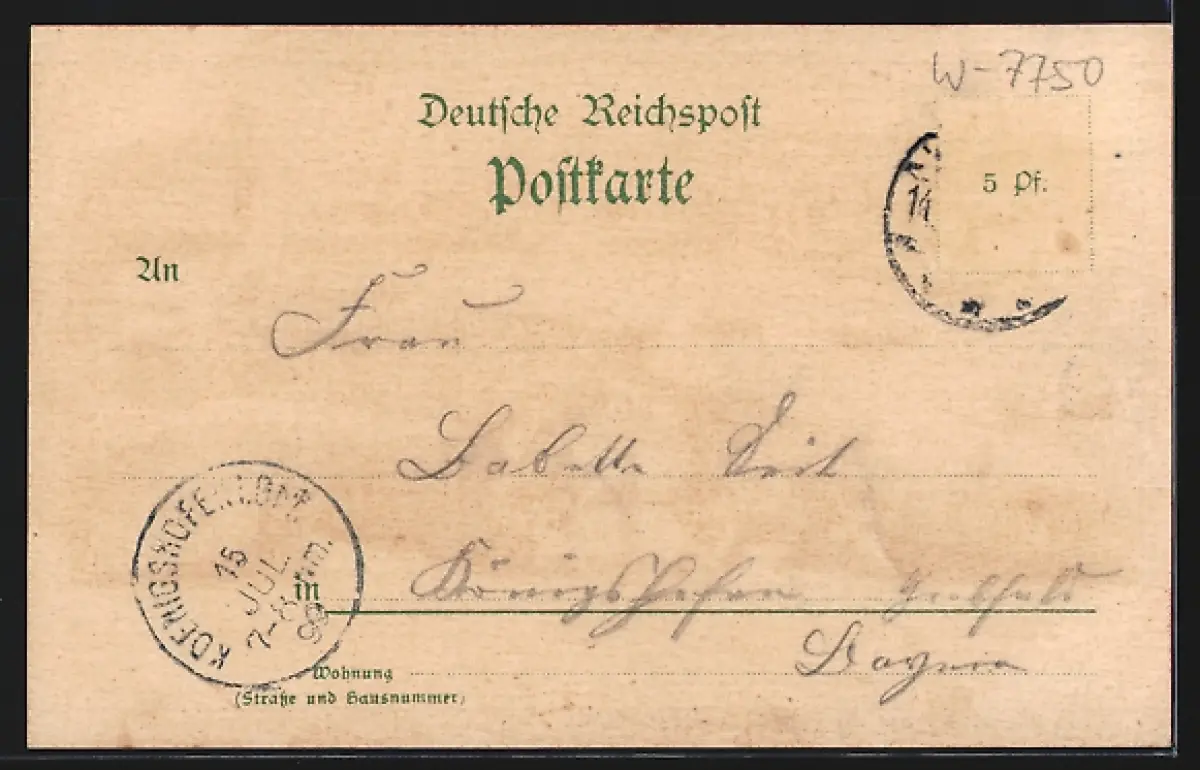 W-7750
Deutsche Reichspost
Postkarte
5 Pf.
14
An
Frau
Babette Veit
KOENIGSHOFEN
15
JUL
7-8 Vm.
99
in Königshofen
Bayern
Wohnung
(Straße und Hausnummer)